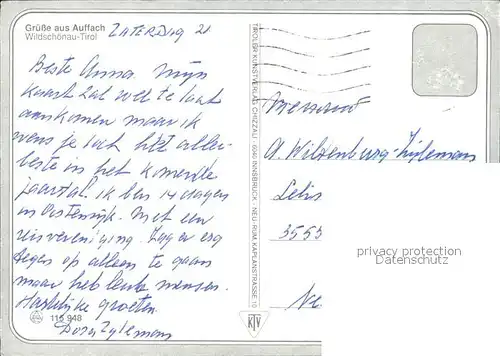 Grüße aus Auffach
Wildschönau-Tirol
ZATERDAG 21
Beste Anna. Mijn
kaart zal wel te laat
aankomen maar ik
wens je toch het aller-
beste in het komende
jaartal. ik ben 14 dagen
in Oostenrijk. Met een
reisvereniging. Zag er erg
tegen op alleen te gaan
maar heb leuke mensen.
Hartelijke groeten.
115 948
TIROLER KUNSTVERLAG CHIZZALI · 6040 INNSBRUCK - NEU-RUM, KAPLANSTRASSE 10
KTV
A. Wiltenburg-
3555
privacy protection
Datenschutz